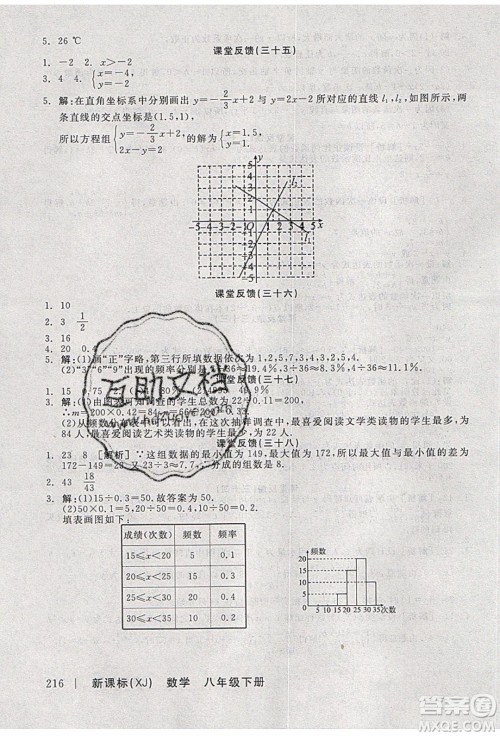 5. 26 ℃
课堂反馈(三十五)
1. -2  2. x>-2
3. 4  4. {x=-4, y=-2
5. 解:在直角坐标系中分别画出 y=-2/3x+2 和 y=2x-2 所对应的直线 l₁,l₂,如图,两
条直线的交点坐标为(1.5,1).
所以方程组{y=-2/3x+2, y=2x-2 的解为{x=1.5, y=1.
y
5
4
3
2
1
-5 -4 -3 -2 -1 O 1 2 3 4 5 x
-1
-2
-3
-4
-5
l₂
l₁
课堂反馈(三十六)
1. 10
2. 3  1/2
3. 16
4. 20  0.4
5. 解:(1)画“正”字略,第三行所填数据依次为 1,2,5,7,3,4,5,3,2,4.
(2)“3”“6”“9”出现的频率分别是
课堂反馈(三十七)
1. 15
3. 解:(1)由图可知调查的学生总数为
∴m=200×0.42=84,
(2)从频数分布表可以看出,在这次抽样调查中,最喜爱阅读文学类读物的学生最多,为
84人,最喜爱阅读艺术类读物的学生最少
课堂反馈(三十八)
1. 23  8  [解析] ∵这组数据的最小值为149,最大值为172,∴最大值与最小值的差为
172-149=23.又23÷3=7 2/3,∴分成的组数是8.
2. 18  43
3. 解:(1)15÷0.3=50.故答案为50.
填表画图如下:
成绩(次数) 频数 频率
15≤x<20 5 0.1
20≤x<25 15 0.3
25≤x<30 20 0.4
30≤x<35 10 0.2
频数
20
15
10
5
0 5 10 15 20 25 30 35 次数
互助文档
216 | 新课标(XJ) 数学 八年级下册
答案圈
MXQE.COM